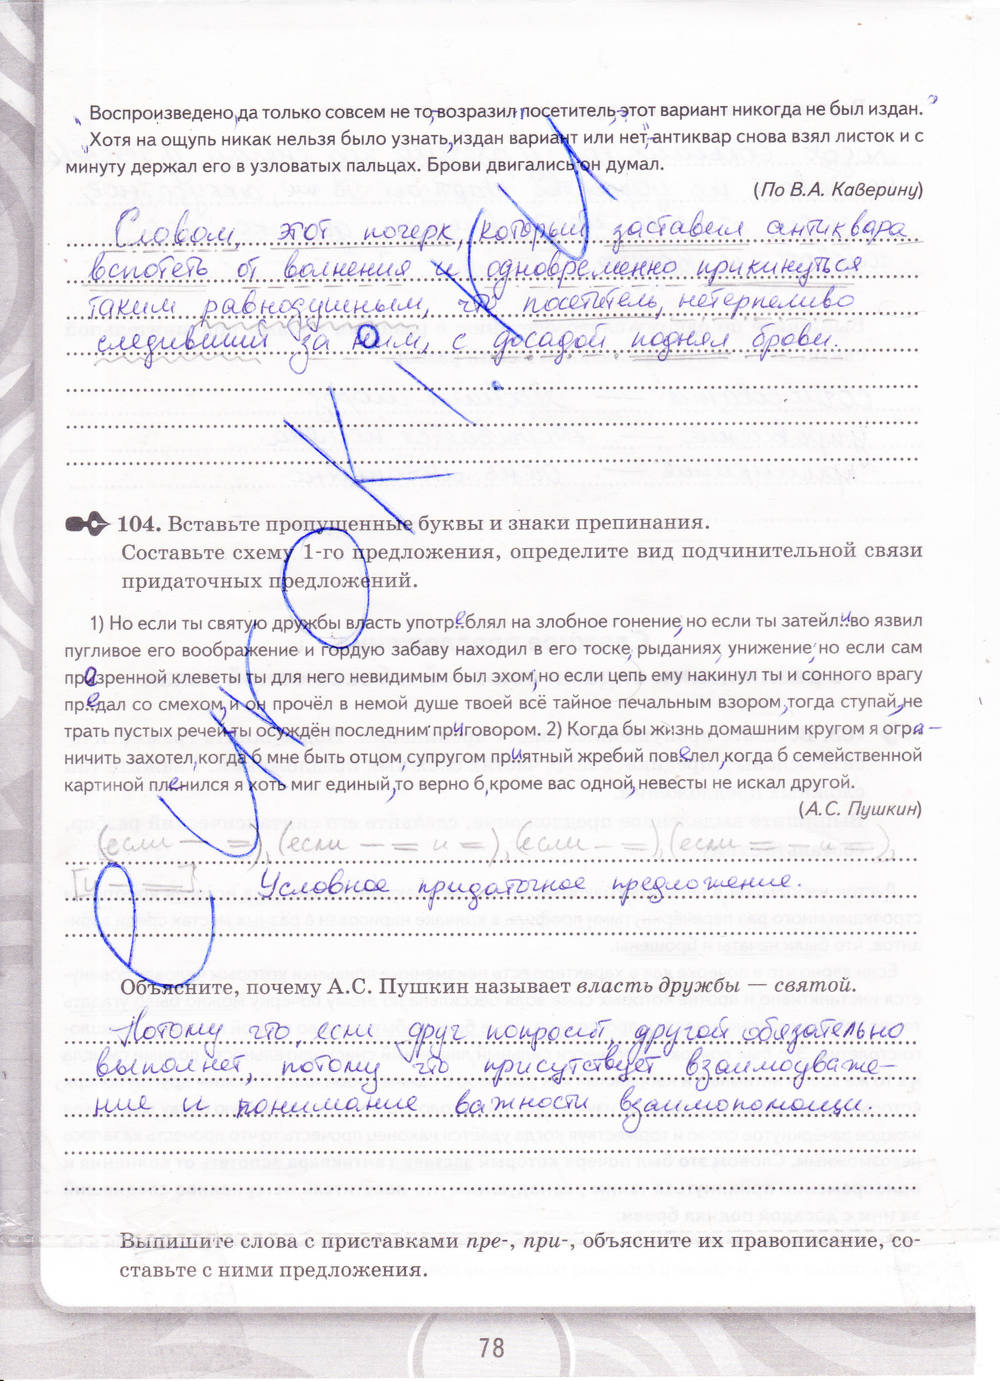 „Воспроизведено, да только совсем не то, – возразил посетитель, – этот вариант никогда не был издан.”
„Хотя на ощупь никак нельзя было узнать, издан вариант или нет”, – антиквар снова взял листок и с
минуту держал его в узловатых пальцах. Брови двигались: он думал.
(По В.А. Каверину)
Словом, этот почерк, который заставил антиквара
вспотеть от волнения и одновременно прикинуться
таким равнодушным, что посетитель, нетерпеливо
следивший за ним, с досадой поднял брови.
104. Вставьте пропущенные буквы и знаки препинания.
Составьте схему 1-го предложения, определите вид подчинительной связи
придаточных предложений.
1) Но если ты святую дружбы власть употреблял на злобное гонение, но если ты затейливо язвил
пугливое его воображение и гордую забаву находил в его тоске, рыданиях, унижение, но если сам
презренной клеветы ты для него невидимым был эхом, но если цепь ему накинул ты и сонного врагу
предал со смехом, и он прочёл в немой душе твоей всё тайное печальным взором, тогда ступай, не
трать пустых речей – ты осуждён последним приговором. 2) Когда бы жизнь домашним кругом я огра-
ничить захотел, когда б мне быть отцом, супругом приятный жребий повелел, когда б семейственной
картиной пленился я хоть миг единый, то верно б, кроме вас одной, невесты не искал другой.
(А.С. Пушкин)
(если — =), (если — = и =), (если — =), (если = — и =),
[и — =]. Условное придаточное предложение.
Объясните, почему А.С. Пушкин называет власть дружбы — святой.
Потому что, если друг попросит, другой обязательно
выполнет, потому что присутствует взаимоуваже-
ние и понимание важности взаимопомощи.
Выпишите слова с приставками пре-, при-, объясните их правописание, со-
ставьте с ними предложения.
78
©УРОКИ.КИ